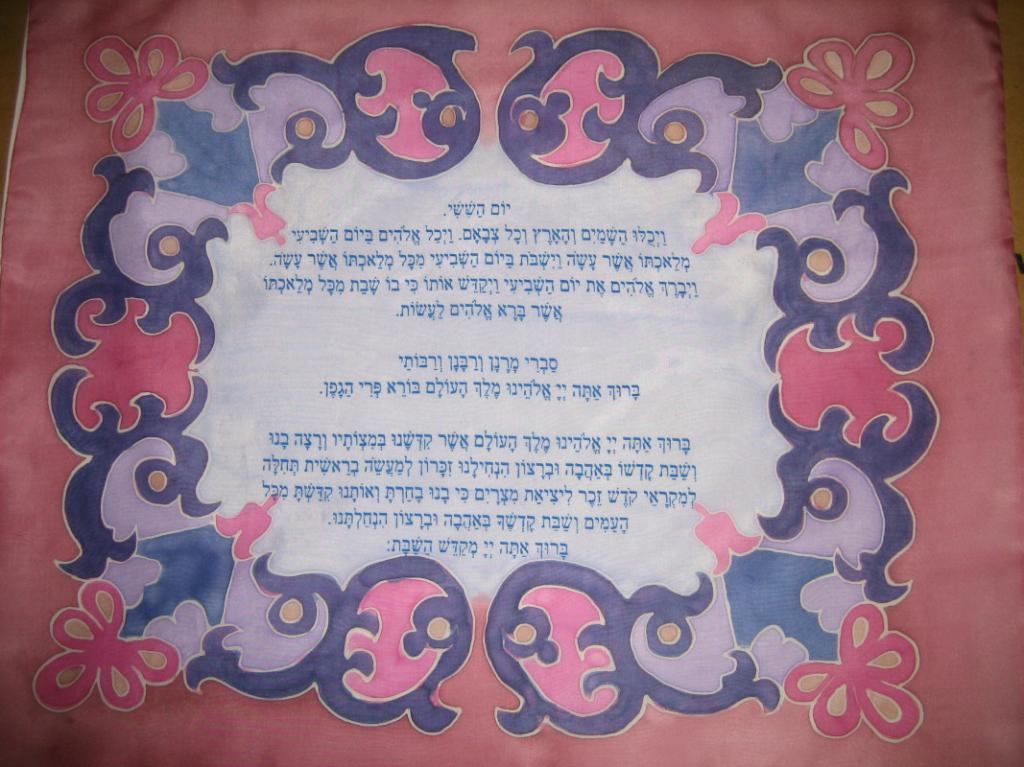 יוֹם הַשִּׁשִּׁי.
וַיְכֻלּוּ הַשָּׁמַיִם וְהָאָרֶץ וְכָל צְבָאָם. וַיְכַל אֱלֹהִים בַּיּוֹם הַשְּׁבִיעִי
מְלַאכְתּוֹ אֲשֶׁר עָשָׂה וַיִּשְׁבֹּת בַּיּוֹם הַשְּׁבִיעִי מִכָּל מְלַאכְתּוֹ אֲשֶׁר עָשָׂה.
וַיְבָרֶךְ אֱלֹהִים אֶת יוֹם הַשְּׁבִיעִי וַיְקַדֵּשׁ אוֹתוֹ כִּי בוֹ שָׁבַת מִכָּל מְלַאכְתּוֹ
אֲשֶׁר בָּרָא אֱלֹהִים לַעֲשׂוֹת.
סַבְרִי מָרָנָן וְרַבָּנָן וְרַבּוֹתַי
בָּרוּךְ אַתָּה יְיָ אֱלֹהֵינוּ מֶלֶךְ הָעוֹלָם בּוֹרֵא פְּרִי הַגָּפֶן.
בָּרוּךְ אַתָּה יְיָ אֱלֹהֵינוּ מֶלֶךְ הָעוֹלָם אֲשֶׁר קִדְּשָׁנוּ בְּמִצְוֹתָיו וְרָצָה בָנוּ
וְשַׁבַּת קָדְשׁוֹ בְּאַהֲבָה וּבְרָצוֹן הִנְחִילָנוּ זִכָּרוֹן לְמַעֲשֵׂה בְרֵאשִׁית תְּחִלָּה
לְמִקְרָאֵי קֹדֶשׁ זֵכֶר לִיצִיאַת מִצְרָיִם כִּי בָנוּ בָחַרְתָּ וְאוֹתָנוּ קִדַּשְׁתָּ מִכָּל
הָעַמִּים וְשַׁבַּת קָדְשְׁךָ בְּאַהֲבָה וּבְרָצוֹן הִנְחַלְתָּנוּ.
בָּרוּךְ אַתָּה יְיָ מְקַדֵּשׁ הַשַּׁבָּת: